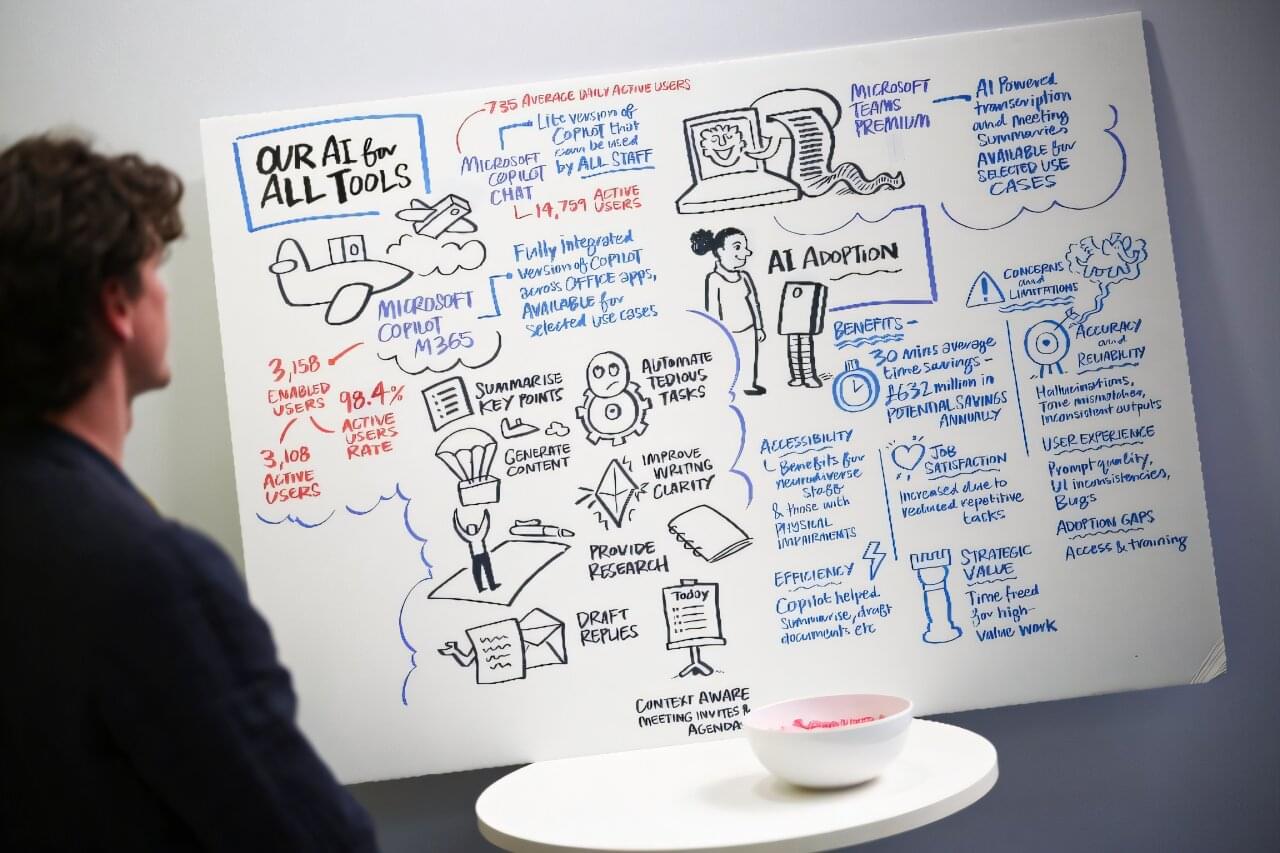 OUR AI for
ALL TOOLS
735 AVERAGE DAILY ACTIVE USERS
MICROSOFT
COPILOT
CHAT
Lite version of
COPILOT that
can be used
by ALL STAFF
14,759 ACTIVE
USERS
MICROSOFT
COPILOT
M365
Fully integrated
version of COPILOT
across OFFICE apps,
AVAILABLE for
selected use cases
3,158
ENABLED
USERS
98.4%
ACTIVE
USERS
RATE
3,108
ACTIVE
USERS
SUMMARISE
KEY POINTS
AUTOMATE
TEDIOUS
TASKS
GENERATE
CONTENT
IMPROVE
WRITING
CLARITY
PROVIDE
RESEARCH
DRAFT
REPLIES
Today
CONTEXT AWARE
MEETING INVITES &
AGENDA
MICROSOFT
TEAMS
PREMIUM
AI Powered
transcription
and meeting
Summaries
AVAILABLE for
SELECTED USE
CASES
AI ADOPTION
BENEFITS -
30 mins average
time savings -
£632 million in
POTENTIAL SAVINGS
ANNUALLY
ACCESSIBILITY
Benefits for
neurodiverse
staff
& those with
PHYSICAL
IMPAIRMENTS
JOB
SATISFACTION
Increased due to
reduced repetitive
tasks
EFFICIENCY
Copilot helped
summarise, draft
documents etc
STRATEGIC
VALUE
Time freed
for high-
value work
CONCERNS
and
LIMITATIONS
ACCURACY
and
RELIABILITY
Hallucinations,
Tone mismatches,
inconsistent outputs
USER EXPERIENCE
Prompt quality,
UI inconsistencies,
Bugs
ADOPTION GAPS
Access & training